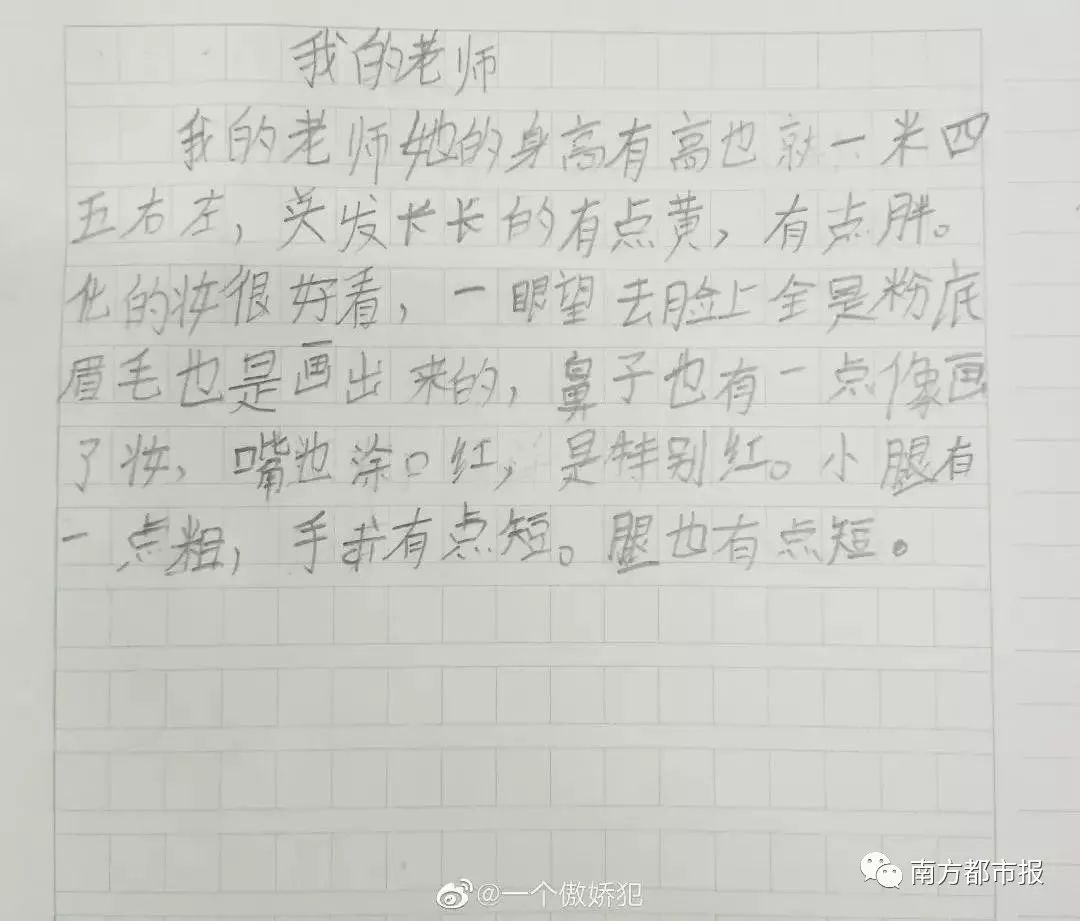 我的老师
我的老师她的身高有高也就一米四
五右左，头发长长的有点黄，有点胖。
化的妆很好看，一眼望去脸上全是粉底
眉毛也是画出来的，鼻子也有一点像画
了妆，嘴也涂口红，是特别红。小腿有
一点粗，手有点短。腿也有点短。
南方都市报
@一个傲娇犯